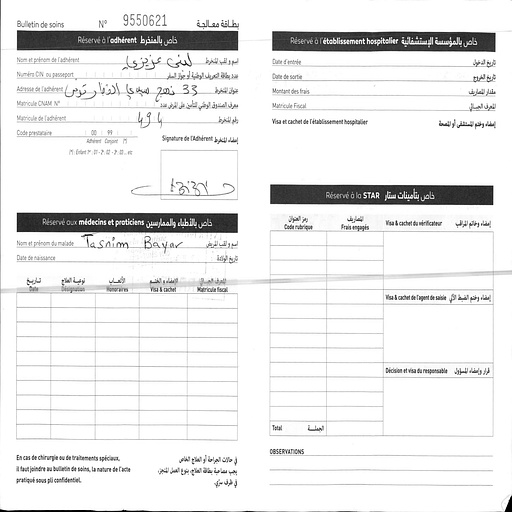 Bulletin de soins N° 9550621 بطاقة معالجة
Réservé à l'adhérent خاص بالمنخرط
Nom et prénom de l'adhérent لبنى عزيزي اسم و لقب المنخرط
Numéro CIN ou passeport عدد بطاقة التعريف الوطنية أو جواز السفر
Adresse de l'adhérent 33 نهج تونس عنوان المنخرط
Matricule CNAM N° معرف الصندوق الوطني للتأمين على المرض عدد
Matricule de l'adhérent 494 رقم المنخرط
Code prestataire 00 99 Signature de l'Adhérent إمضاء المنخرط
Adhérent Conjoint (*)
(*) : Enfant 1er : 01 - 2e : 02 - 3e : 03 ... etc
Réservé aux médecins et praticiens خاص بالأطباء والممارسين
Nom et prénom du malade Tasnim Bayar اسم و لقب المريض
Date de naissance تاريخ الولادة
تاريخ نوعية العلاج الأتعاب الإمضاء و الختم المعرف الجبائي
Date Désignation Honoraires Visa & cachet Matricule fiscal
En cas de chirurgie ou de traitements spéciaux,
il faut joindre au bulletin de soins, la nature de l'acte
pratiqué sous pli confidentiel.
في حالات الجراحة أو العلاج الخاص
يجب مصاحبة بطاقة العلاج، بنوع العمل المنجز،
في ظرف سري.
Réservé à l'établissement hospitalier خاص بالمؤسسة الإستشفائية
Date d'entrée تاريخ الدخول
Date de sortie تاريخ الخروج
Montant des frais مقدار المصاريف
Matricule Fiscal المعرف الجبائي
Visa et cachet de l'établissement hospitalier إمضاء وختم المستشفى أو المصحة
Réservé à la STAR خاص بتأمينات ستار
رمز العنوان المصاريف
Code rubrique Frais engagés Visa & cachet du vérificateur إمضاء وخاتم المراقب
Visa & cachet de l'agent de saisie إمضاء وختم الضبط الآلي
Décision et visa du responsable قرار وإمضاء المسؤول
Total الجملة
OBSERVATIONS